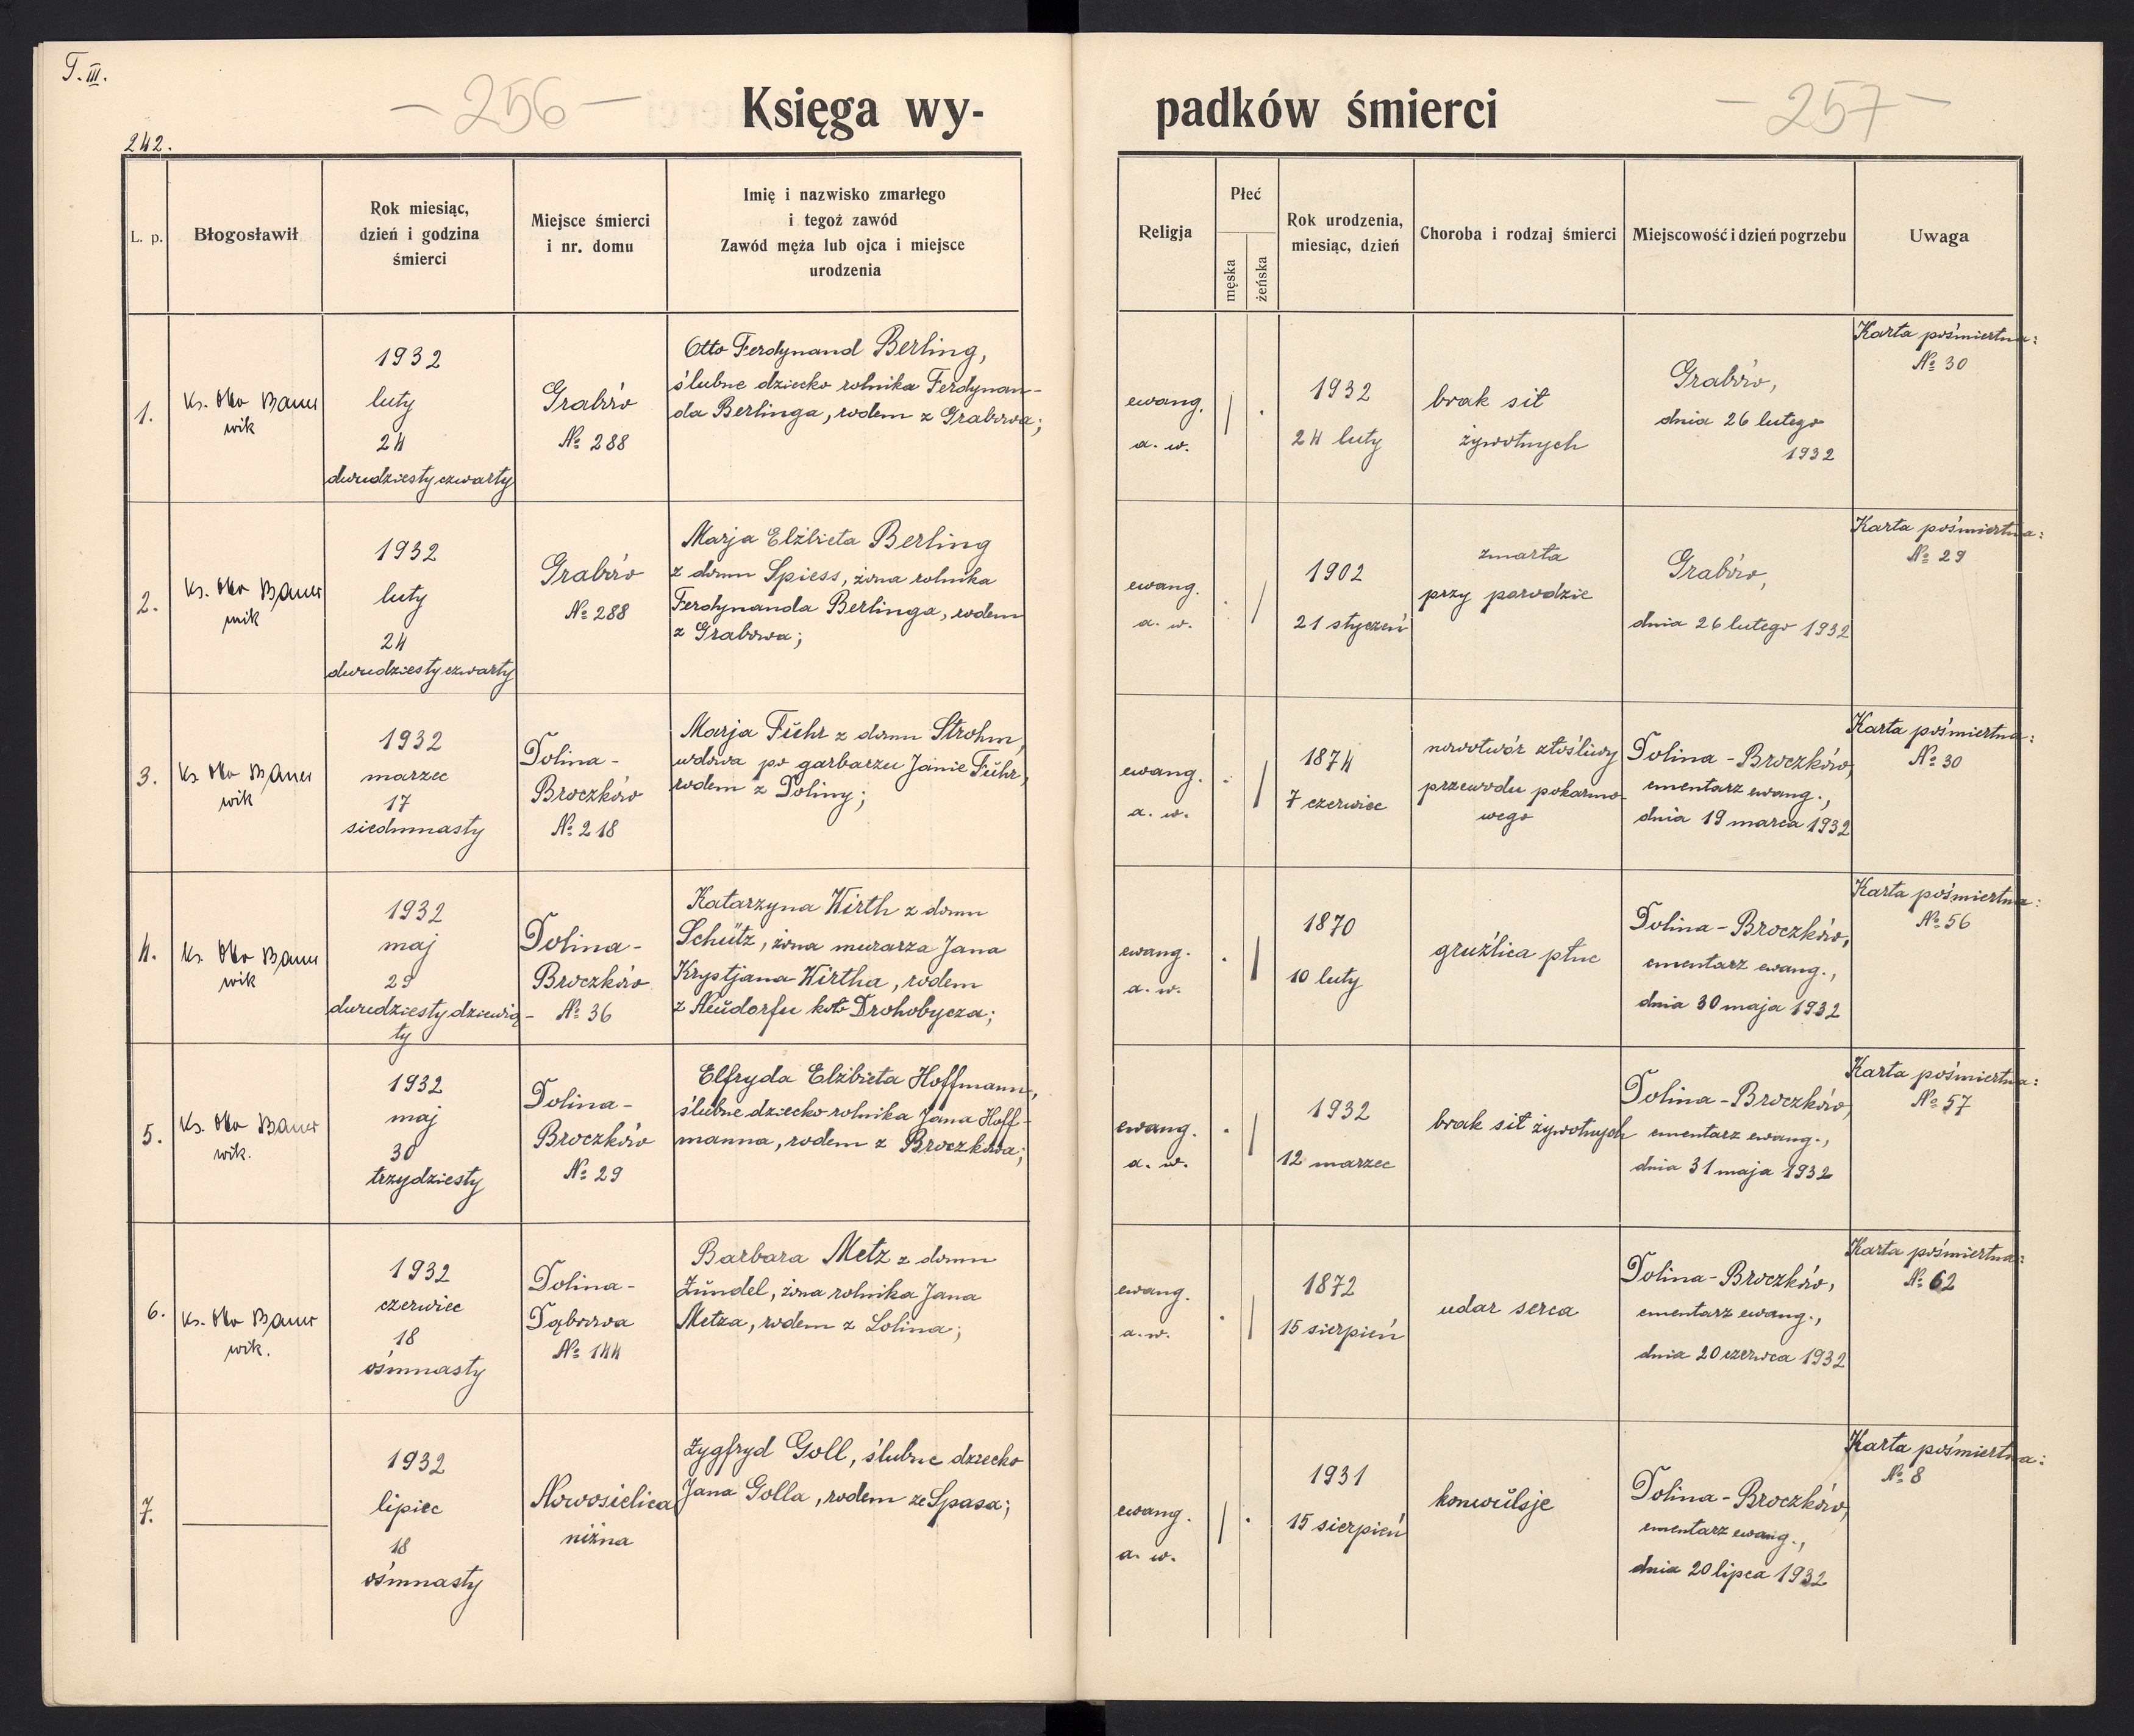 T. III.
— 256 —
Księga wy-
242.
L. p.
Błogosławił
Rok miesiąc,
dzień i godzina
śmierci
Miejsce śmierci
i nr. domu
Imię i nazwisko zmarłego
i tegoż zawód
Zawód męża lub ojca i miejsce
urodzenia
1.
Ks. Otto Bauer
wik
1932
luty
24
dwudziesty czwarty
Grabów
№ 288
Otto Ferdynand Berling,
ślubne dziecko rolnika Ferdynan-
da Berlinga, rodem z Grabowa;
2.
Ks. Otto Bauer
wik
1932
luty
24
dwudziesty czwarty
Grabów
№ 288
Marja Elżbieta Berling
z domu Spiess, żona rolnika
Ferdynanda Berlinga, rodem
z Grabowa;
3.
Ks. Otto Bauer
wik
1932
marzec
17
siedmnasty
Dolina-
Broczków
№ 218
Marja Führ z domu Strohm,
wdowa po garbarzu Janie Führ,
rodem z Doliny;
4.
Ks. Otto Bauer
wik
1932
maj
29
dwudziesty dziewią-
ty
Dolina-
Broczków
№ 36
Katarzyna Wirth z domu
Schütz, żona murarza Jana
Krystjana Wirtha, rodem
z Neudorfu koło Drohobycza;
5.
Ks. Otto Bauer
wik.
1932
maj
30
trzydziesty
Dolina-
Broczków
№ 29
Elfryda Elżbieta Hoffmann,
ślubne dziecko rolnika Jana Hoff-
manna, rodem z Broczkowa;
6.
Ks. Otto Bauer
wik.
1932
czerwiec
18
ośmnasty
Dolina-
Dąbrowa
№ 144
Barbara Metz z domu
Zündel, żona rolnika Jana
Metza, rodem z Dolina;
7.
1932
lipiec
18
ośmnasty
Nowosielica
niżna
Zygfryd Goll, ślubne dziecko
Jana Golla, rodem ze Spasa;
padków śmierci
— 257 —
Religja
Płeć
męska
żeńska
Rok urodzenia,
miesiąc, dzień
Choroba i rodzaj śmierci
Miejscowość i dzień pogrzebu
Uwaga
ewang.
a. w.
1932
24 luty
brak sił
żywotnych
Grabów,
dnia 26 lutego
1932
Karta pośmiertna:
№ 30
ewang.
a. w.
1902
21 styczeń
zmarła
przy porodzie
Grabów,
dnia 26 lutego 1932
Karta pośmiertna:
№ 29
ewang.
a. w.
1874
7 czerwiec
nowotwór złośliwy
przewodu pokarmo-
wego
Dolina-Broczków,
cmentarz ewang.,
dnia 19 marca 1932
Karta pośmiertna:
№ 30
ewang.
a. w.
1870
10 luty
gruźlica płuc
Dolina-Broczków,
cmentarz ewang.,
dnia 30 maja 1932
Karta pośmiertna:
№ 56
ewang.
a. w.
1932
12 marzec
brak sił żywotnych
Dolina-Broczków,
cmentarz ewang.,
dnia 31 maja 1932
Karta pośmiertna:
№ 57
ewang.
a. w.
1872
15 sierpień
udar serca
Dolina-Broczków,
cmentarz ewang.,
dnia 20 czerwca 1932
Karta pośmiertna:
№ 62
ewang.
a. w.
1931
15 sierpień
konwulsje
Dolina-Broczków,
cmentarz ewang.,
dnia 20 lipca 1932
Karta pośmiertna:
№ 8